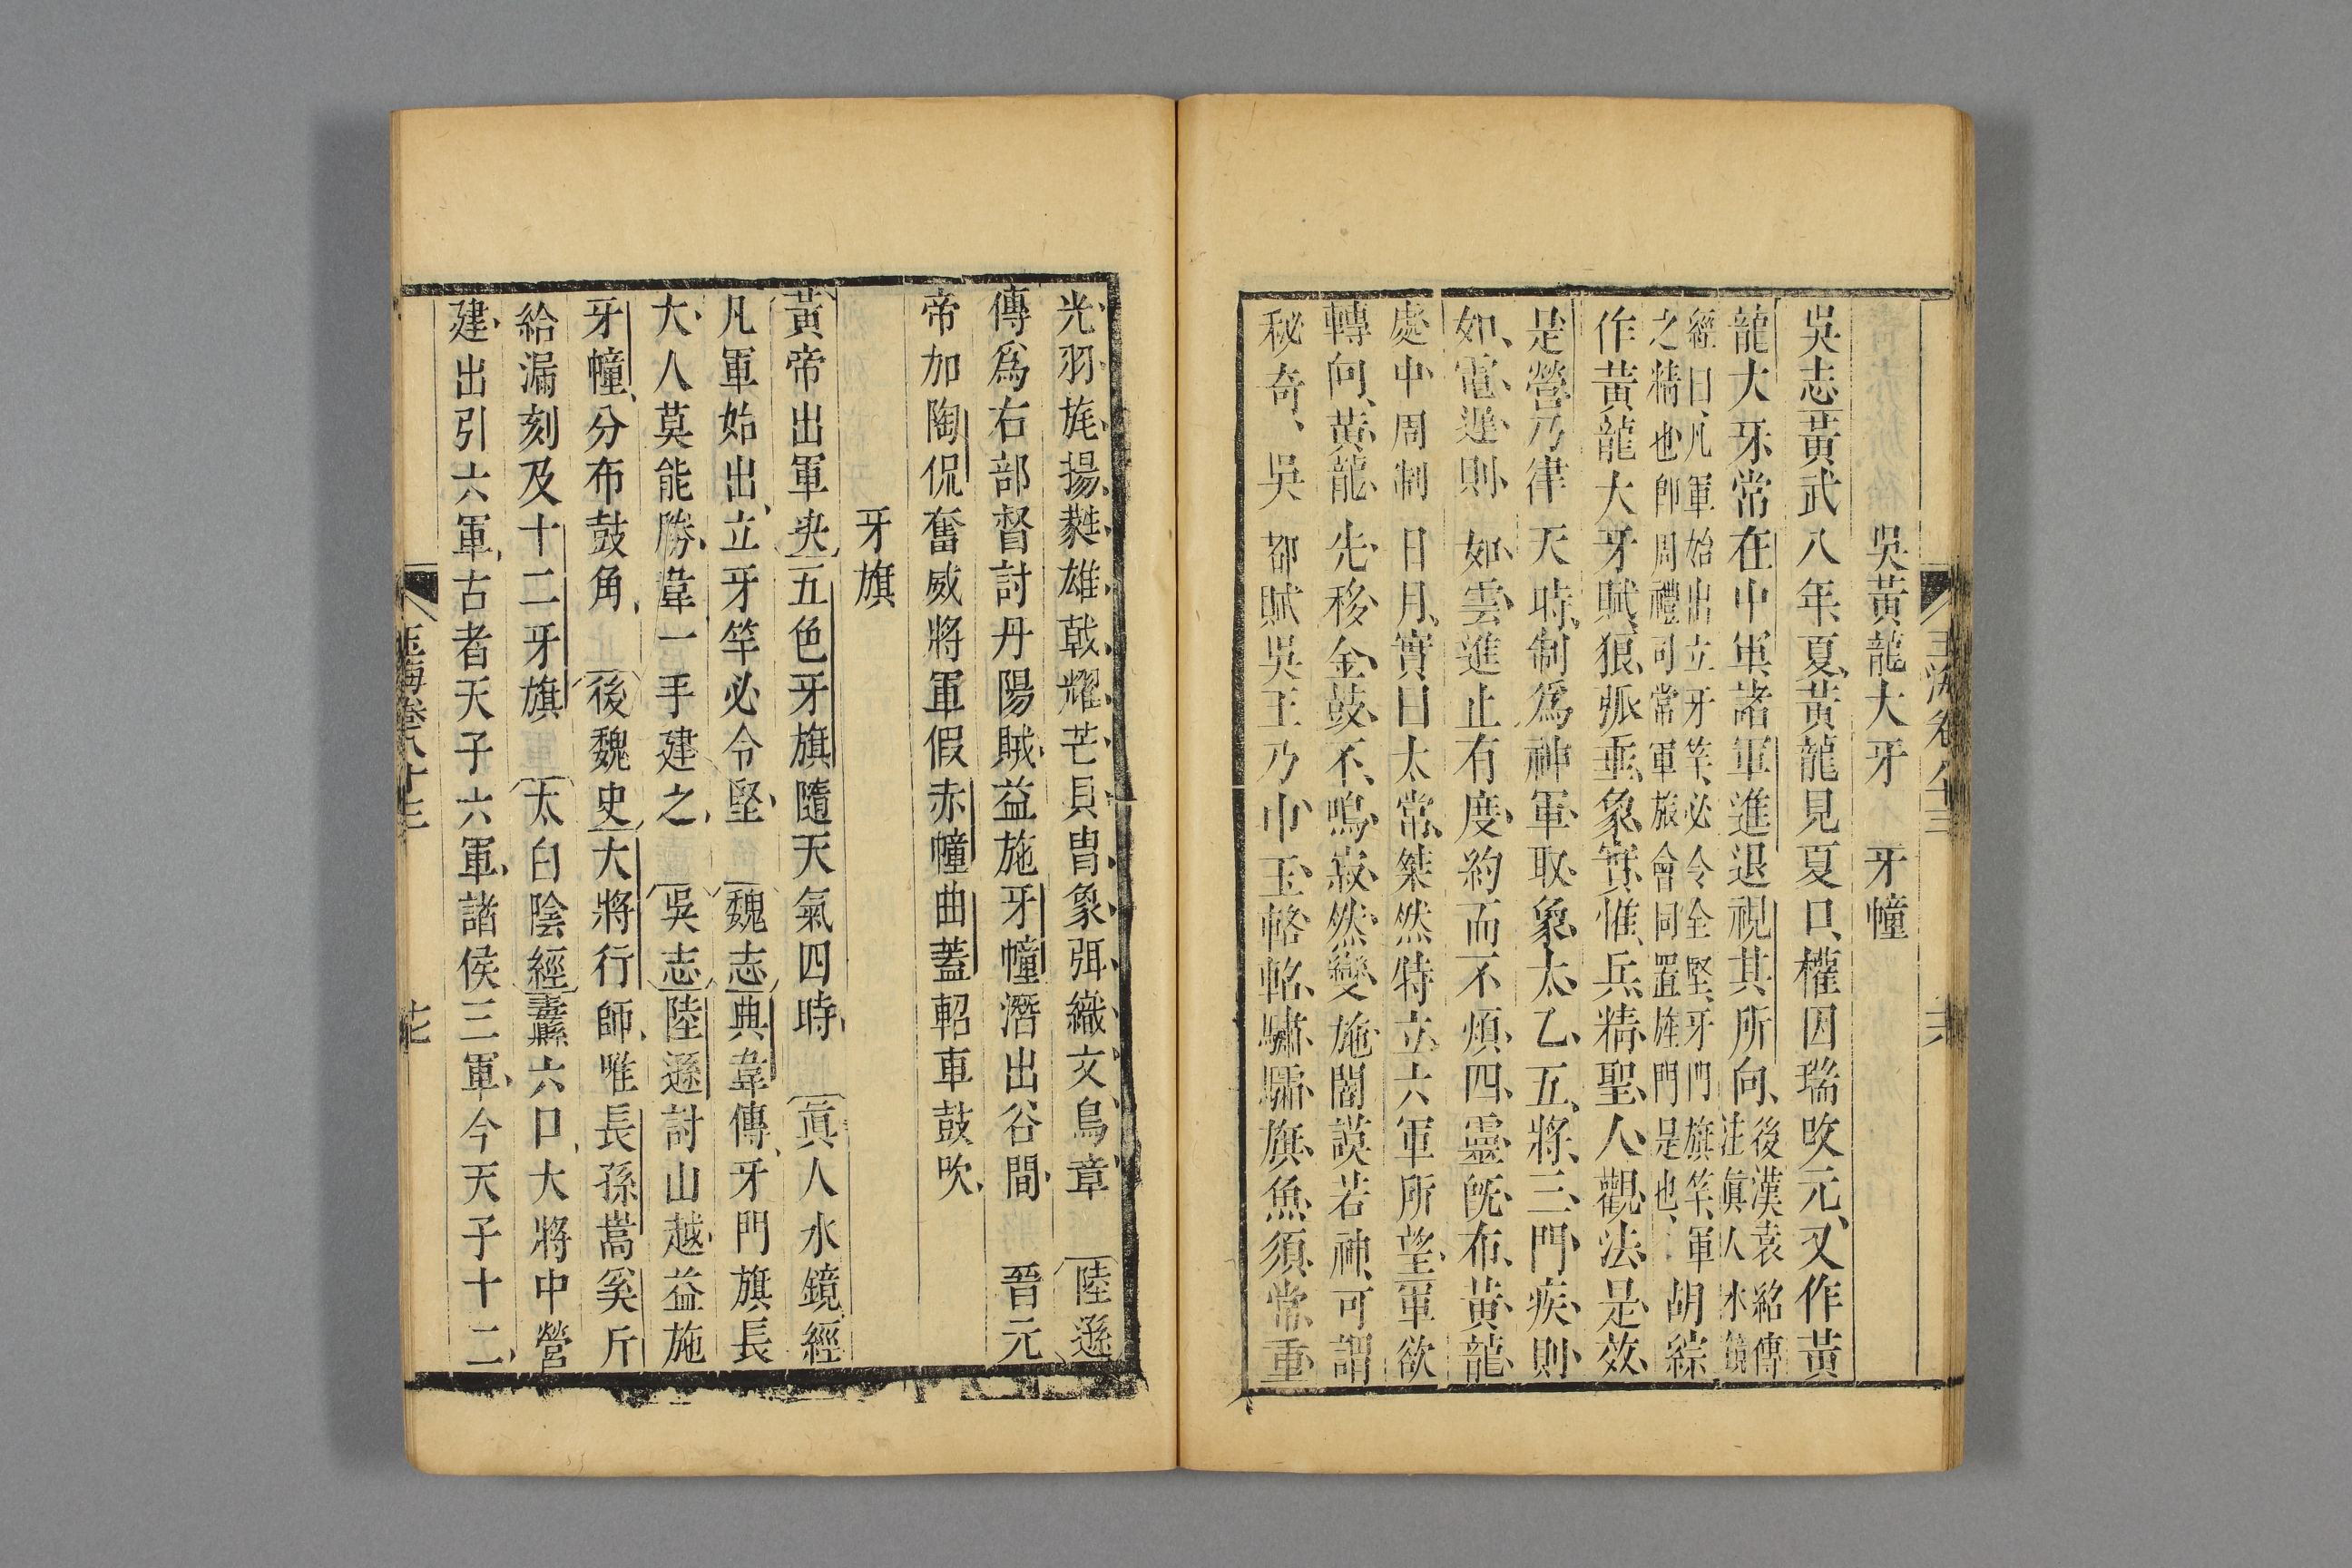 玉海卷八十三
吳黃龍大牙 牙幢
吳志黃武八年夏黃龍見夏口權因瑞吹元又作黃
龍大牙常在中軍諸軍進退視其所向後漢袁紹傳注眞人水鏡
經曰凡軍始出立牙竿必令全堅牙門旗竿軍之精也卽周禮司常軍旅會同置旌門是也胡綜
作黃龍大牙賦狼弧垂象實惟兵精聖人觀法是效
是營乃律天時制爲神軍取象太乙五將三門疾則
如電遲則如雲進止有度約而不煩四靈旣布黃龍
處中周制日月實曰太常桀然特立六軍所望軍欲
轉向黃龍先移金鼓不鳴寂然變施闇謨若神可謂
秘奇吳都賦吳王乃巾玉輅軺驌驦旗魚須常重
光羽旄揚蕤雄戟耀芒貝冑象弭織文鳥章陸遜
傳爲右部督討丹陽賊益施牙幢潛出谷間晉元
帝加陶侃奮威將軍假赤幢曲蓋軺車鼓吹
牙旗
黃帝出軍決五色牙旗隨天氣四時眞人水鏡經
凡軍始出立牙竿必令堅魏志典韋傳牙門旗長
大人莫能勝韋一手建之吳志陸遜討山越益施
牙幢分布鼓角後魏史大將行師唯長孫嵩奚斤
給漏刻及十二牙旗太白陰經纛六口大將中營
建出引六軍古者天子六軍諸侯三軍今天子十二
玉海卷八十三